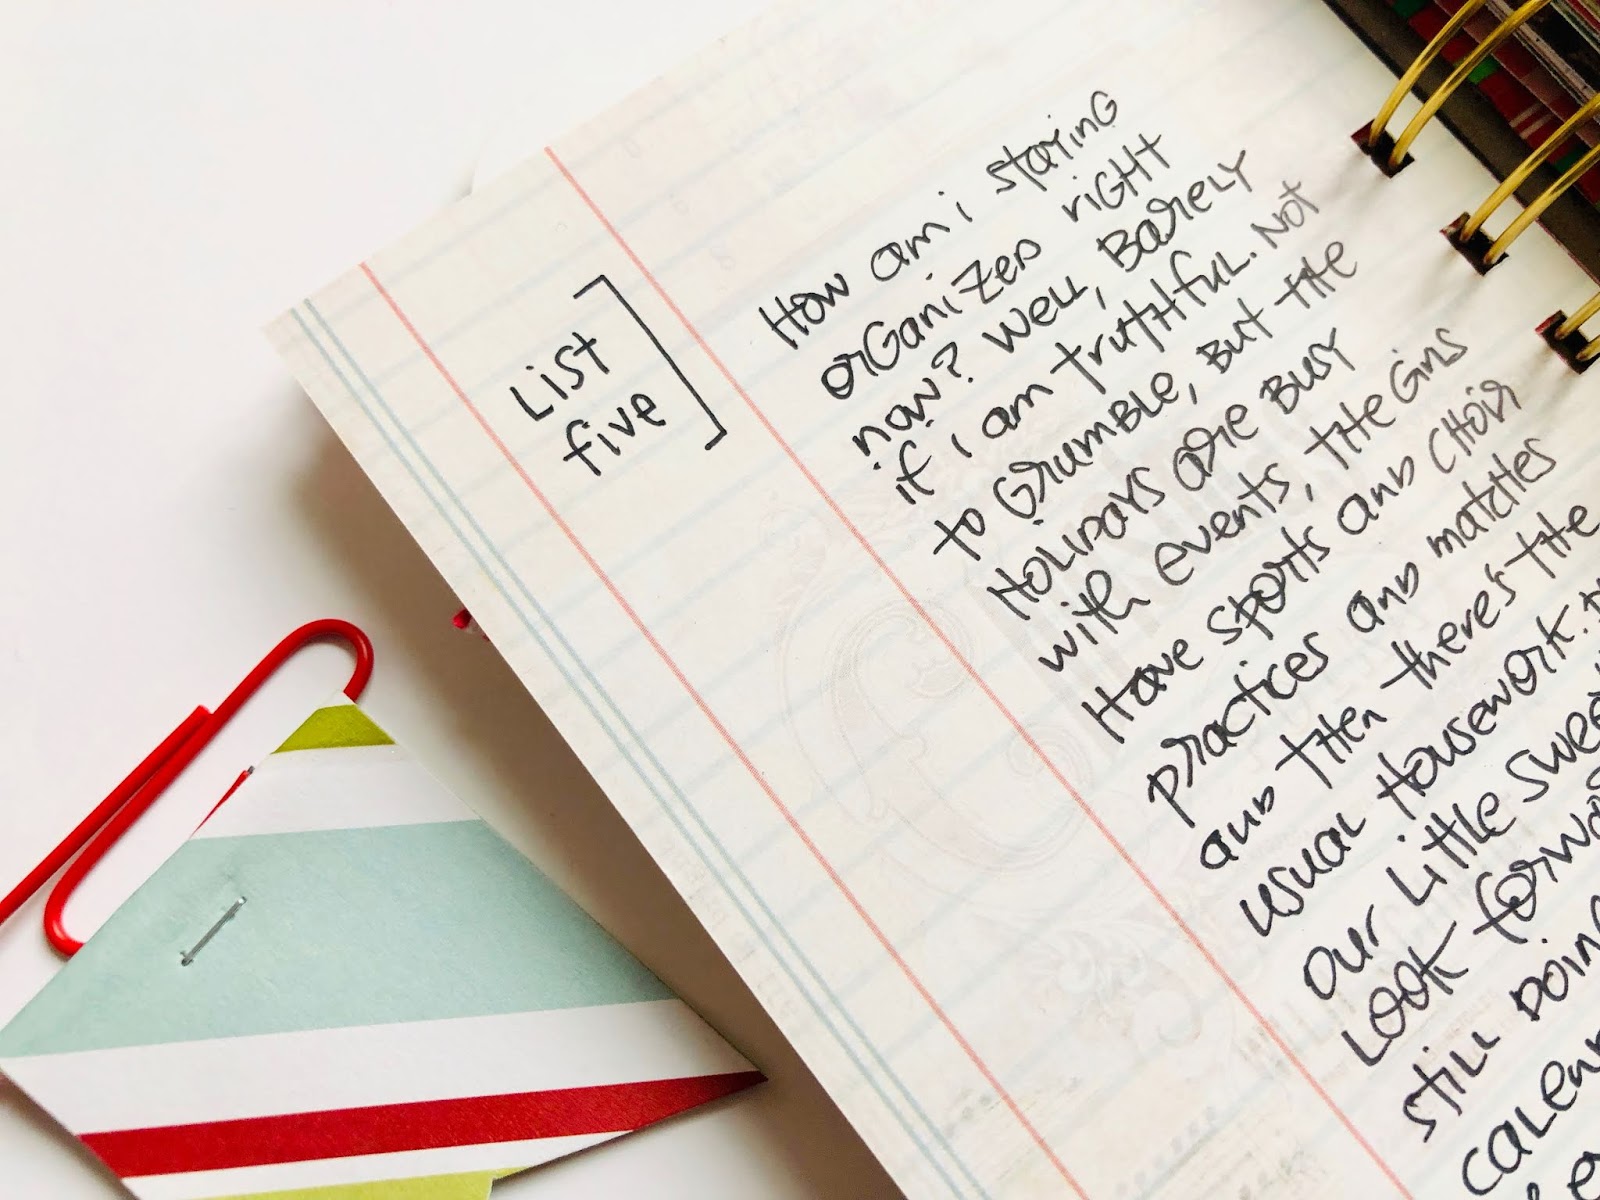 List
five
How am i staring
organized right
now? Well, Barely
if i am truthful. Not
to Grumble, But the
Holidays are Busy
with events, the Girls
Have sports and choir
practices and matches
and then there's the
usual Housework.
our Little
Look
still Doing